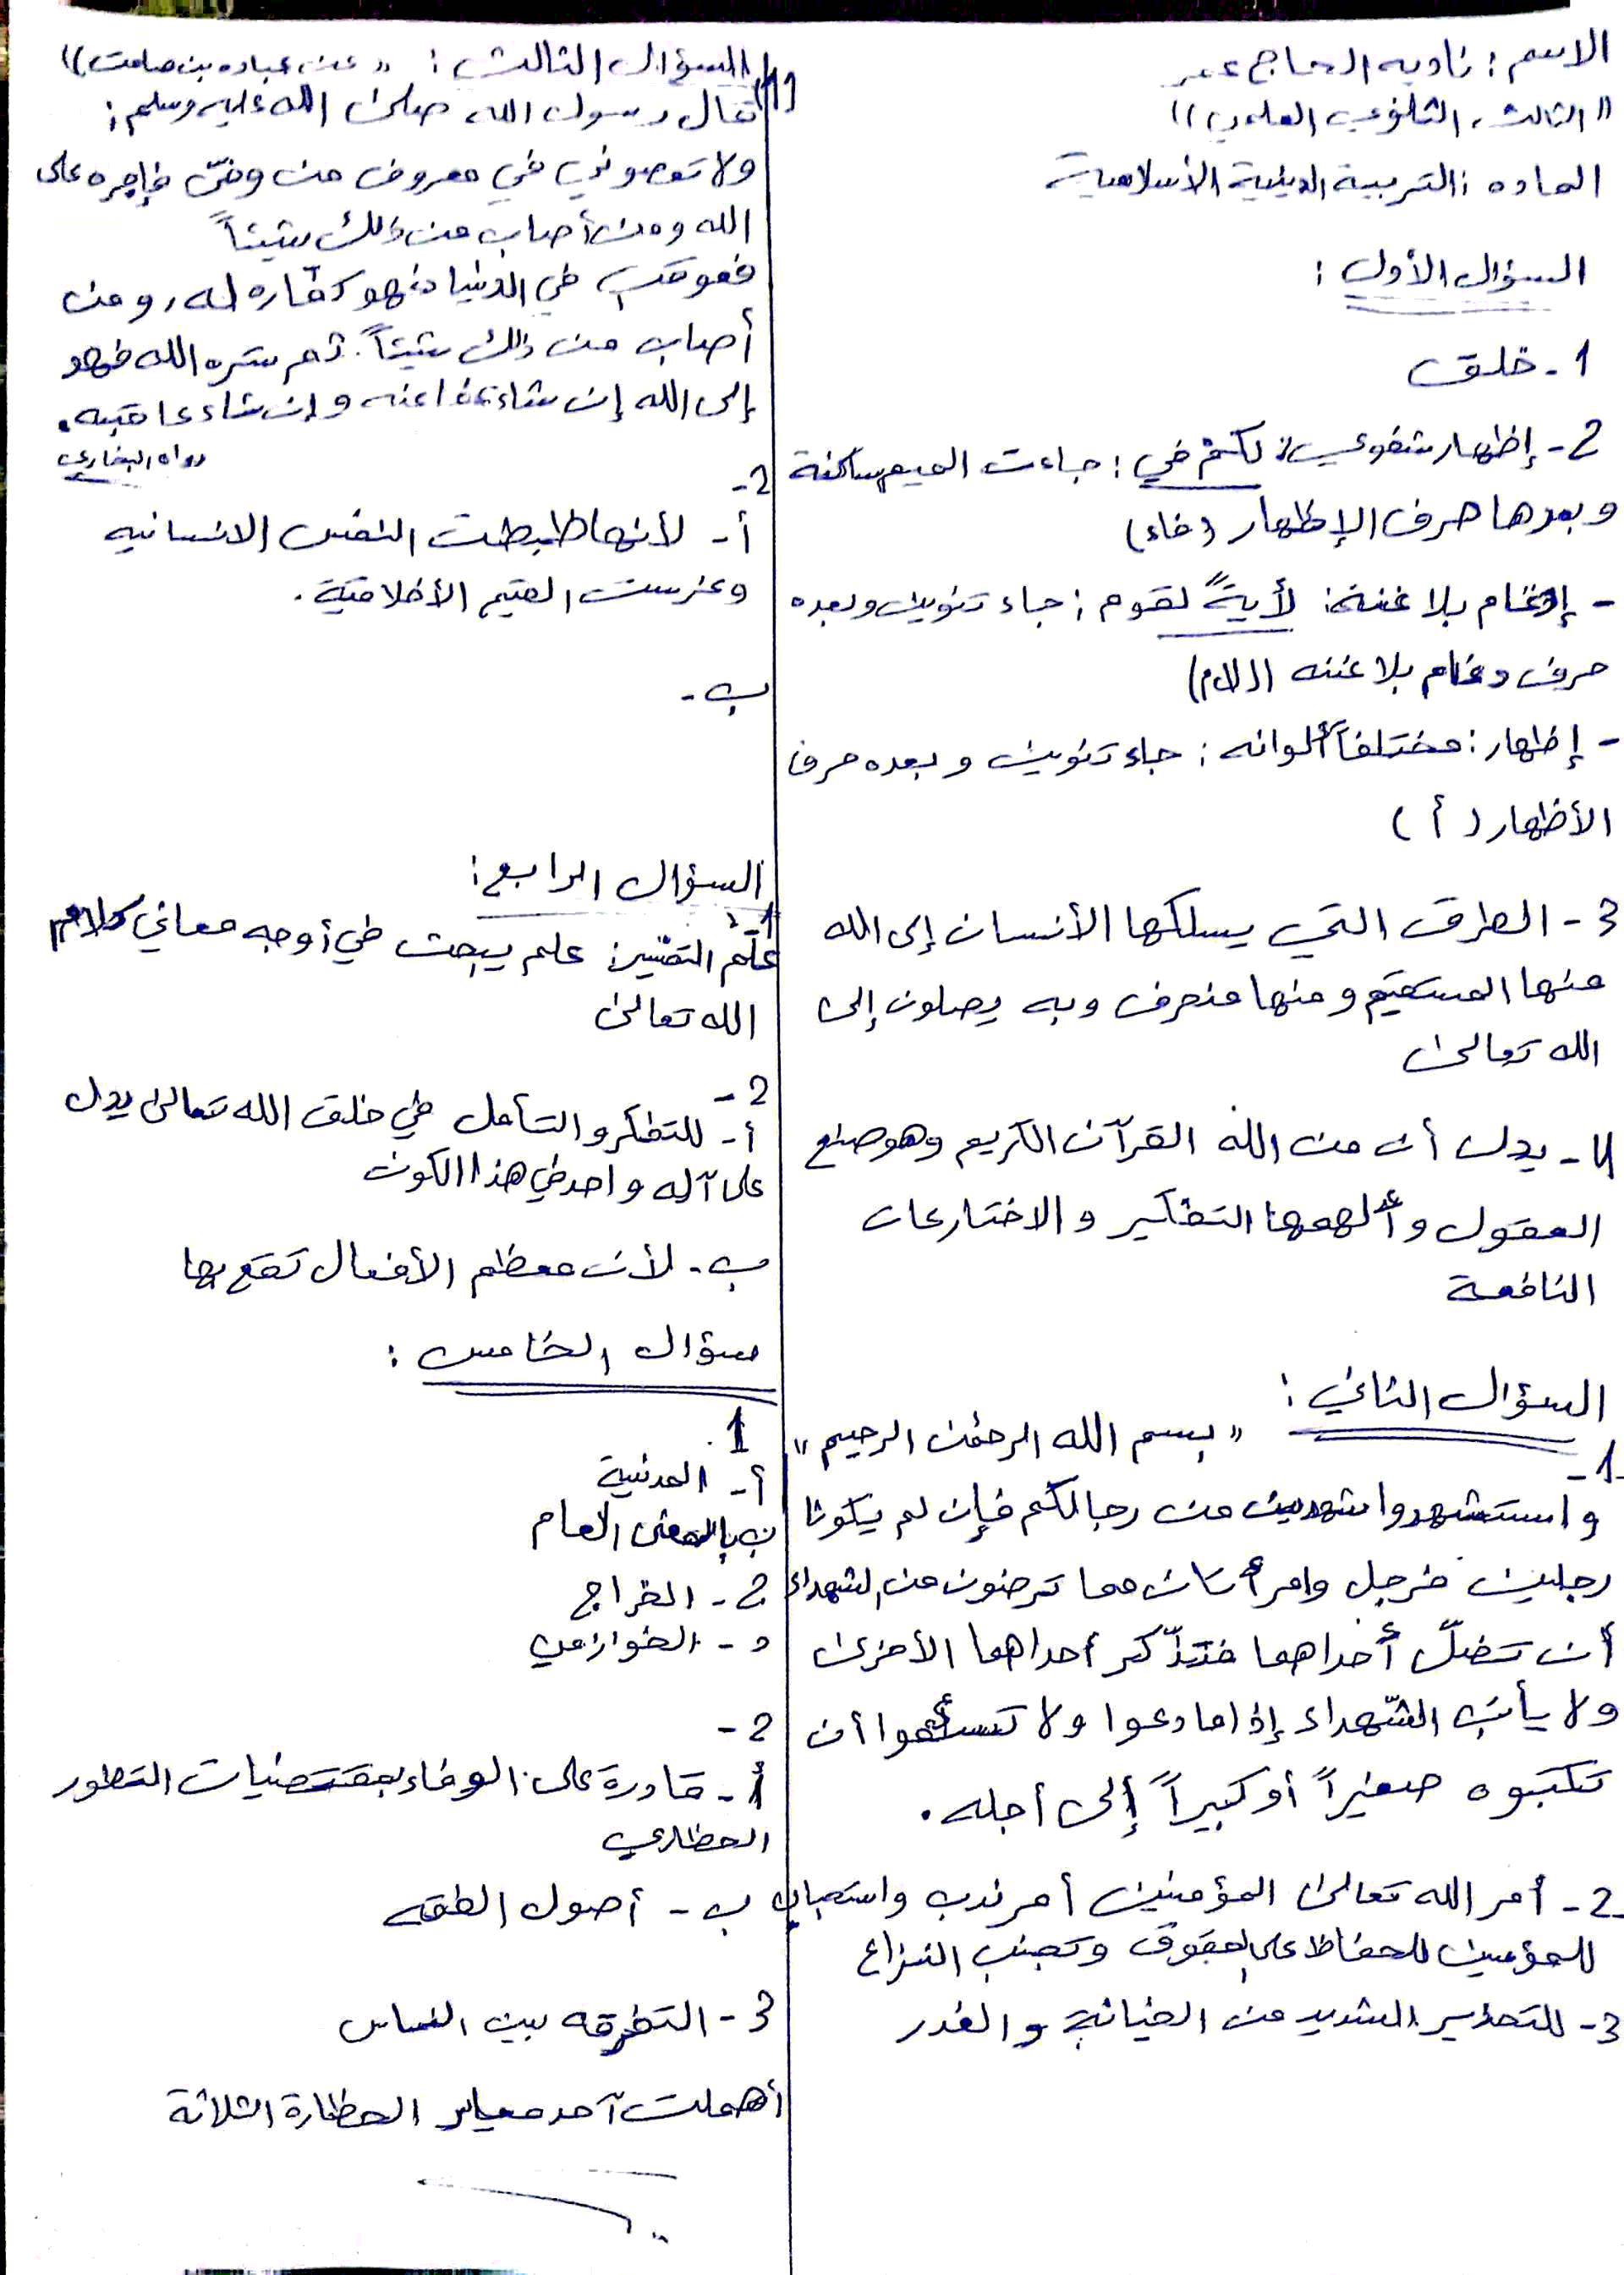 الاسم : نادية الحاج عمر
"الثالث الثانوي العلمي))
الماده : التربية الدينية الأسلامية
السؤال الأول :
1- خلق
2- إظهار شفوي : لكم في : جاءت الميم ساكنة
وبعدها حرف الإظهار (فاء)
- إدغام بلا غنة: لأيةً لقوم : جاء تنوين وبعده
حرف دغام بلا غنه (اللام)
- إظهار : مختلفاً ألوانه : جاء تنوين و بعده حرف
الأظهار (أ)
3- الطرق التي يسلكها الأنسان إلى الله
منها المستقيم و منها منحرف وبه يصلون إلى
الله تعالى
4- يدل أن من الله القرآن الكريم وهو صنع
العقول و ألهمها التفكير و الاختارعات
النافعة
السؤال الثاني :
"بسم الله الرحمن الرحيم"
1-
واستشهدوا شهدين من رجالكم فإن لم يكونا
رجلين فرجل وامرأتان مما ترضون من الشهداء
أن تضلّ أحداهما فتذّكر احداهما الأخرى
ولا يأب الشّهداء إذا ما دعوا ولا تسأموا أن
تكتبوه صغيراً أو كبيراً إلى أجله .
2- أمر الله تعالى المؤمنين أمر ندب واستحباب
للمؤمين للحفاظ على الحقوق وتجنب النزاع
3- للتحذير الشديد من الخيانة والغدر
السؤال الثالث : "عن عباده بن صامت))
1) قال رسول الله صلى الله عليه وسلم :
ولا تعصوني في معروف من وفىّ فإجره على
الله ومن أصاب من ذلك شيئاً
فعوقب في الدنيا فهو كفّاره له, و من
أصاب من ذلك شيئاً. ثم ستره الله فهو
إلى الله إن شاء عفا عنه وإن شاء عاقبه .
رواه البخاري
2-
أ- لأنها ظبطت النفس الانسانيه
وغرست القيم الأخلاقية .
ب-
السؤال الرابع :
1-
علم التفسير: علم يبحث في أوجه معاني كلام
الله تعالى
2-
أ- للتفكر و التأمل في خلق الله تعالى يدل
على آله واحد في هذا الكون
ب- لأن معظم الأفعال تقع بها
سؤال الخامس :
1.
أ- المدنية
ب- بالمعنى العام
ج- الخراج
د- الخوارزمي
2-
أ- قادرة على الوفاء بمقتضيات التطور
الحظاري
ب- أصول الفقه
3- التفرقه بين الناس
أهملت آحد معيار الحظارة الثلاثة